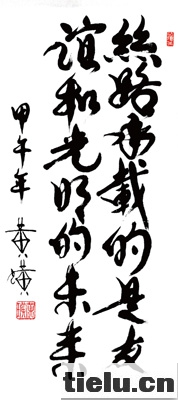 絲路承載的是友
誼和光明的未来
甲午年 黄
tielu.cn